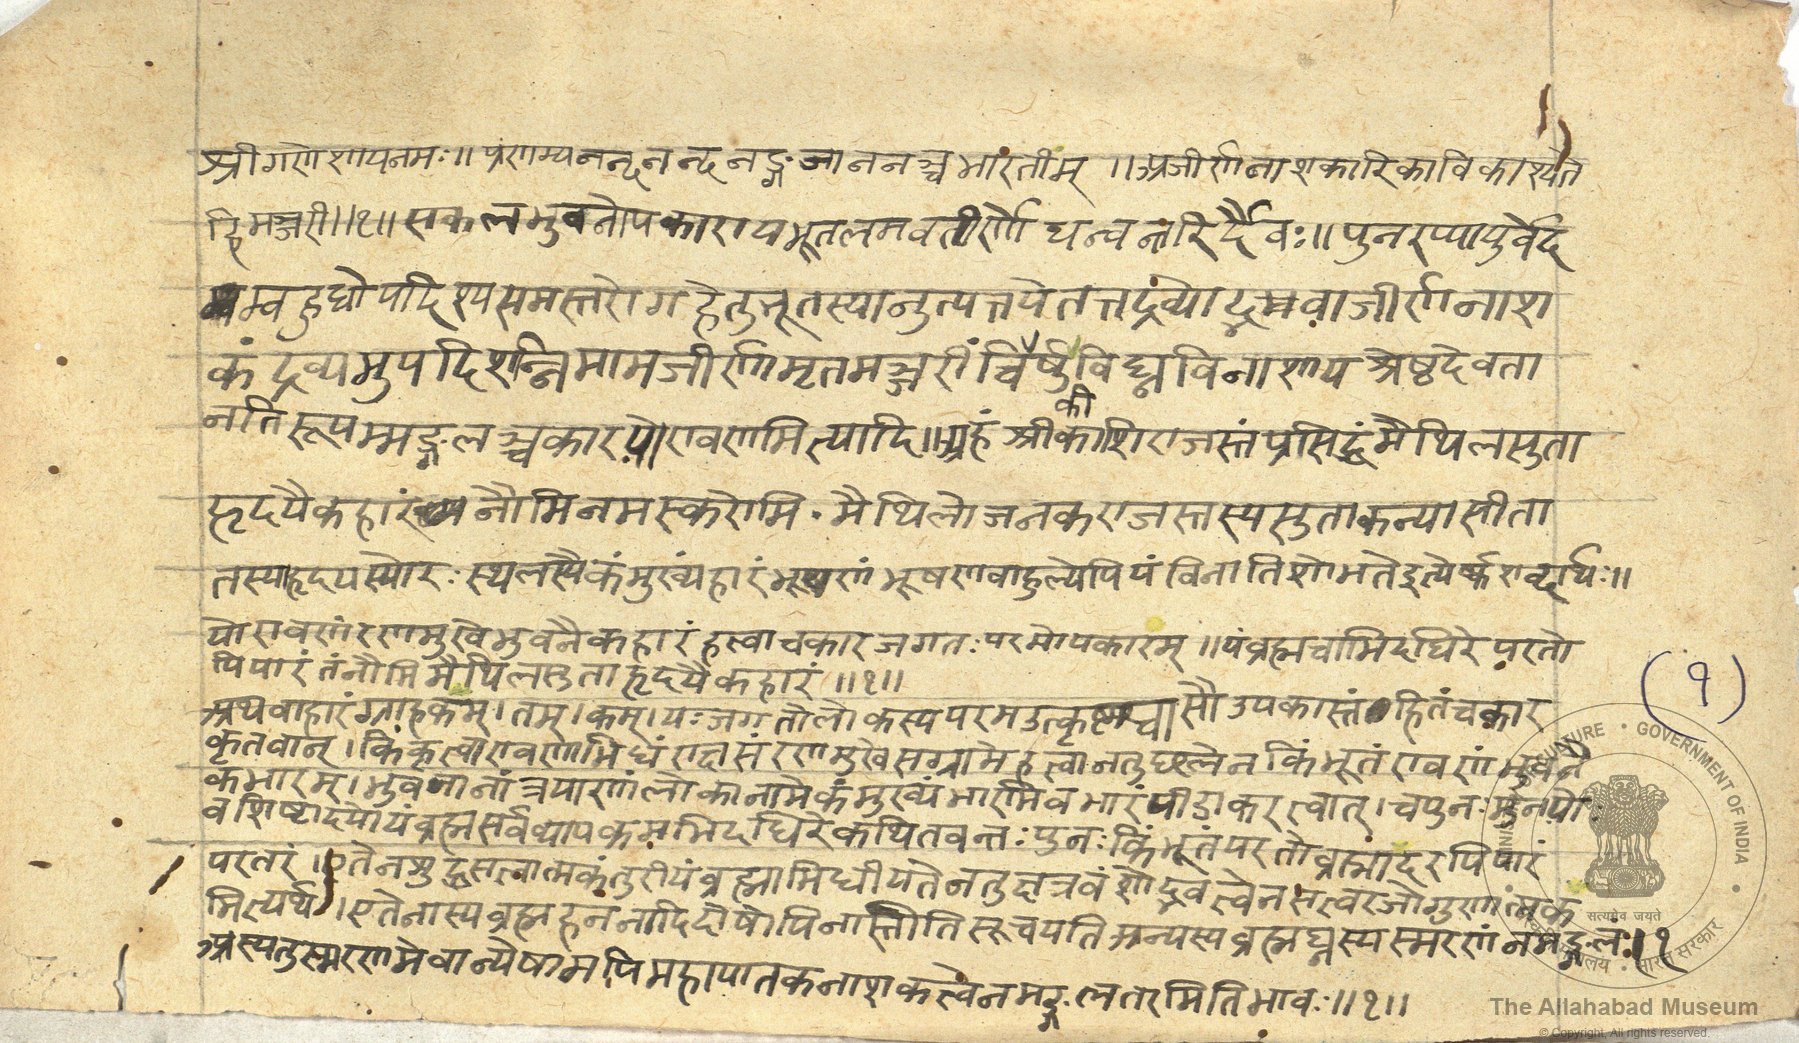 श्रीगणेशायनमः॥ प्रणम्यनन्दनन्दनङ्गजाननञ्चभारतीम् ॥अजीर्णनाशकारिकाविकाश्यते
हिमञ्जरी॥१॥ सकलभुवनोपकारायभूतलमवतीर्णो धन्वन्तरिर्दैवः॥ पुनरप्यायुर्वेद
म्बहुधोपदिश्यसमस्तरोगहेतुभूतस्यानुत्पत्तयेतत्तद्रव्योद्भवाजीर्णनाश
कंद्रव्यमुपदिशन्निमामजीर्णामृतमञ्जरीं विघ्नविनाशाय श्रेष्ठदेवता
नतिरूपम्मङ्गलञ्चकारयोरावणमित्यादि॥अहं श्रीकाशिराजस्तंप्रसिद्धंमैथिलसुता
की
हृदयैकहारं नौमिनमस्करोमि. मैथिलोजनकराजस्तस्यसुताकन्यासीता
तस्याहृदयस्योरःस्थलस्यैकंमुख्यंहारंभूषणंभूषणवाहुल्येपियंविनातिशोभते
योरावणंरणमुखेभुवनैकहारंहत्वाचकारजगतःपरमोपकारम् ॥यंब्रह्मचाभिदधिरेपरतो
पिपारंतंनौमिमैथिलसुताहृदयैकहारं ॥१॥
अथवाहारंग्राहकम्।तम्।कम्।यःजगतोलोकस्यपरमउत्कृष्ट हितंचकार
कृतवान्।किंकृत्वारावणाभिधं रणमुखेसंग्रामेहत्वानतुछलेन किंभूतंरावणं
कभारम्।भुवनानांत्रयाणांलोकानामेकंमुख्यंभारमिवभारंपीडाकरत्वात्।चपुनःमुनयो
वशिष्टादयोयंब्रह्मसर्वव्यापकमभिदधिरेकथितवन्तःपुनःकिंभूतंपरतोब्रह्मादेरपिपारं
परतरं।एतेनशुद्धसत्वात्मकंतुरीयंब्रह्माभिधीयतेनतुक्षत्रवंशोद्भवत्वेनसत्वरजोगुणात्मक
मित्यर्थः।एतेनास्यब्रह्महननादिदोषोपिनास्तीतिसूचयतिअन्यस्यब्रह्मघ्नस्यस्मरणंनमङ्गलं।१
अस्यतुस्मरणमेवान्येषामपिमहापातकनाशकत्वेनमङ्गलतरमितिभावः॥१॥
(१)
GOVERNMENT OF INDIA
सत्यमेव जयते
भारत सरकार
The Allahabad Museum
© Copyright, All rights reserved.